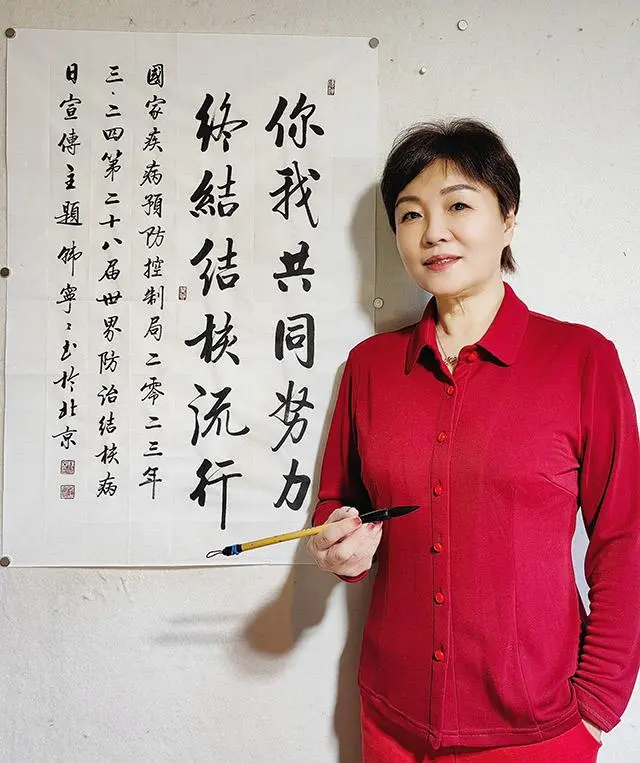 你我共同努力
終結结核流行
國家疾病預防控制局二零二三年
三·二四第二十八届世界防治结核病
日宣傳主題 韩寧寧书於北京